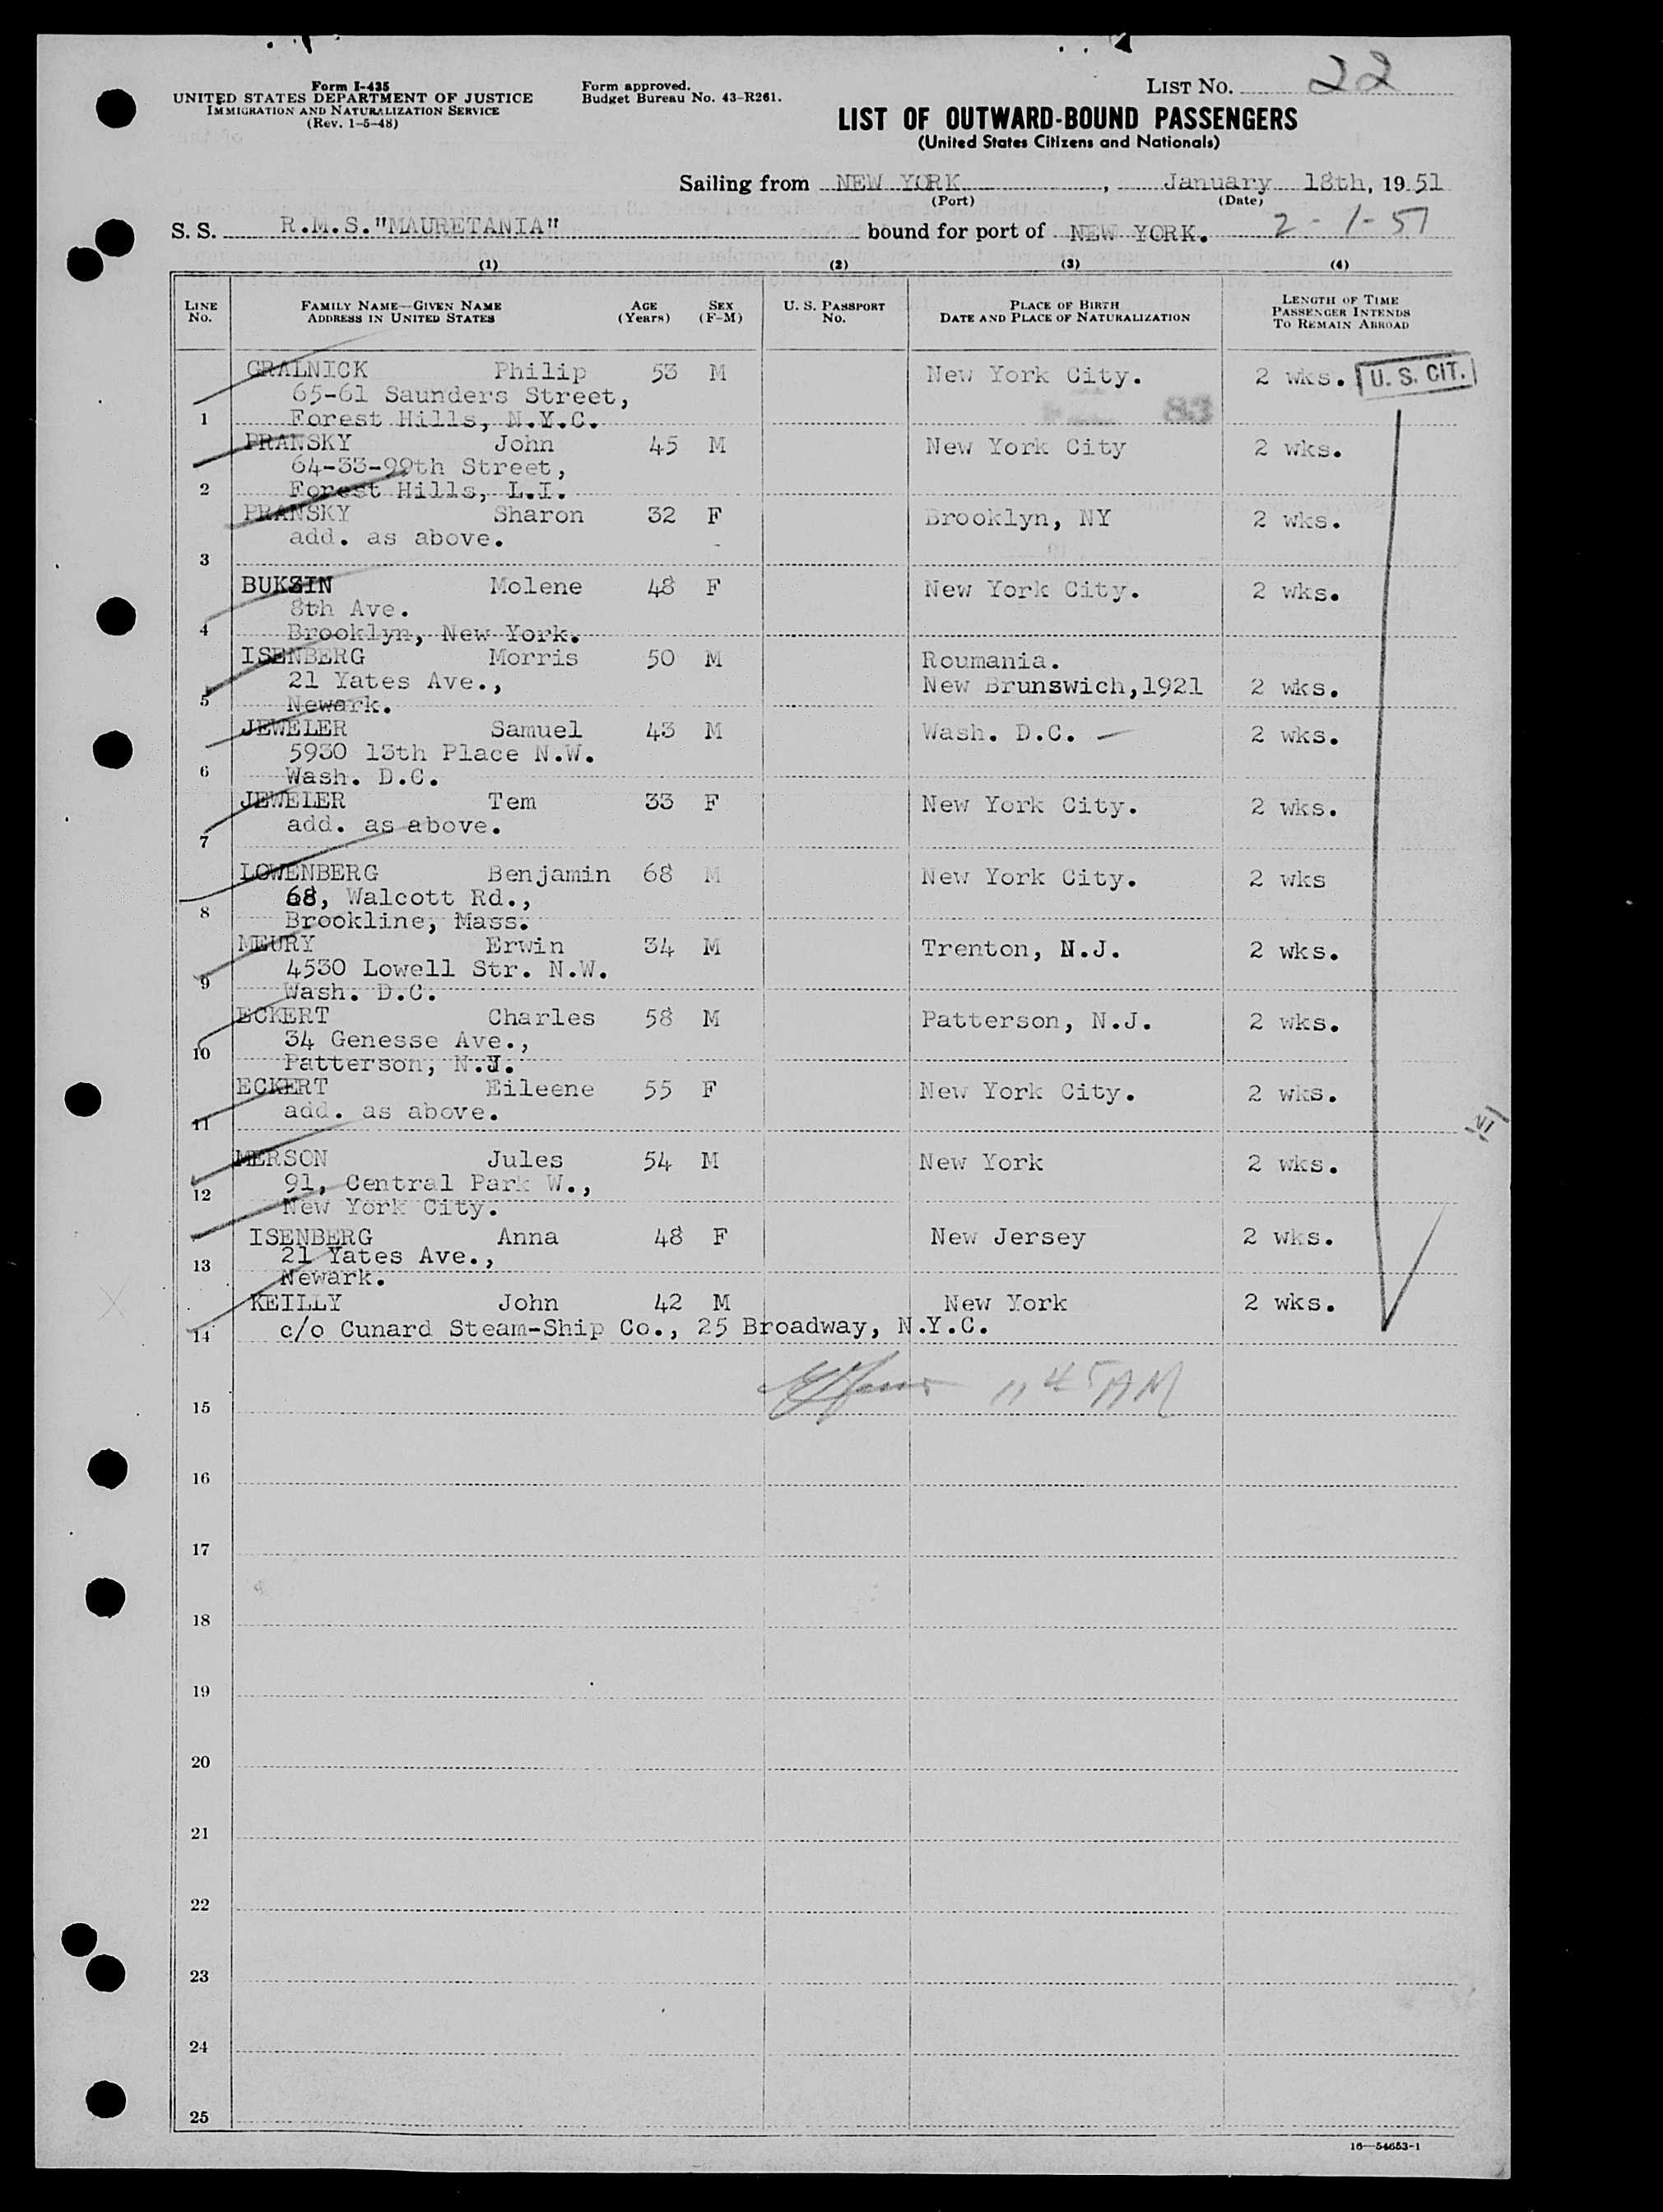 Form I-435
UNITED STATES DEPARTMENT OF JUSTICE
IMMIGRATION AND NATURALIZATION SERVICE
(Rev. 1-5-48)
Form approved.
Budget Bureau No. 43-R261.
LIST NO. 22
LIST OF OUTWARD-BOUND PASSENGERS
(United States Citizens and Nationals)
Sailing from NEW YORK, January 18th, 1951
(Port) (Date)
S. S. R.M.S."MAURETANIA" bound for port of NEW YORK. 2-1-51
(1) (2) (3) (4)
LINE No. FAMILY NAME—GIVEN NAME ADDRESS IN UNITED STATES AGE (Years) SEX (F-M) U. S. PASSPORT No. PLACE OF BIRTH DATE AND PLACE OF NATURALIZATION LENGTH OF TIME PASSENGER INTENDS TO REMAIN ABROAD
GRALNICK Philip 53 M New York City. 2 wks. U. S. CIT.
65-61 Saunders Street,
83
1 Forest Hills, N.Y.C.
PRANSKY John 45 M New York City 2 wks.
64-33-99th Street,
2 Forest Hills, L.I.
PRANSKY Sharon 32 F Brooklyn, NY 2 wks.
add. as above.
3
BUKSIN Molene 48 F New York City. 2 wks.
8th Ave.
4 Brooklyn, New York.
ISENBERG Morris 50 M Roumania.
21 Yates Ave., New Brunswich,1921 2 wks.
5 Newark.
JEWELER Samuel 43 M Wash. D.C. — 2 wks.
5930 13th Place N.W.
6 Wash. D.C.
JEWELER Tem 33 F New York City. 2 wks.
add. as above.
7
LOWENBERG Benjamin 68 M New York City. 2 wks
68, Walcott Rd.,
8 Brookline, Mass.
MEURY Erwin 34 M Trenton, N.J. 2 wks.
4530 Lowell Str. N.W.
9 Wash. D.C.
ECKERT Charles 58 M Patterson, N.J. 2 wks.
34 Genesse Ave.,
10 Patterson, N.J.
ECKERT Eileene 55 F New York City. 2 wks.
add. as above.
11
MERSON Jules 54 M New York 2 wks.
91, Central Park W.,
12 New York City.
ISENBERG Anna 48 F New Jersey 2 wks.
21 Yates Ave.,
13 Newark.
KEILLY John 42 M New York 2 wks.
14 c/o Cunard Steam-Ship Co., 25 Broadway, N.Y.C.
11 45 AM
15
16
17
18
19
20
21
22
23
24
25
16—54653-1